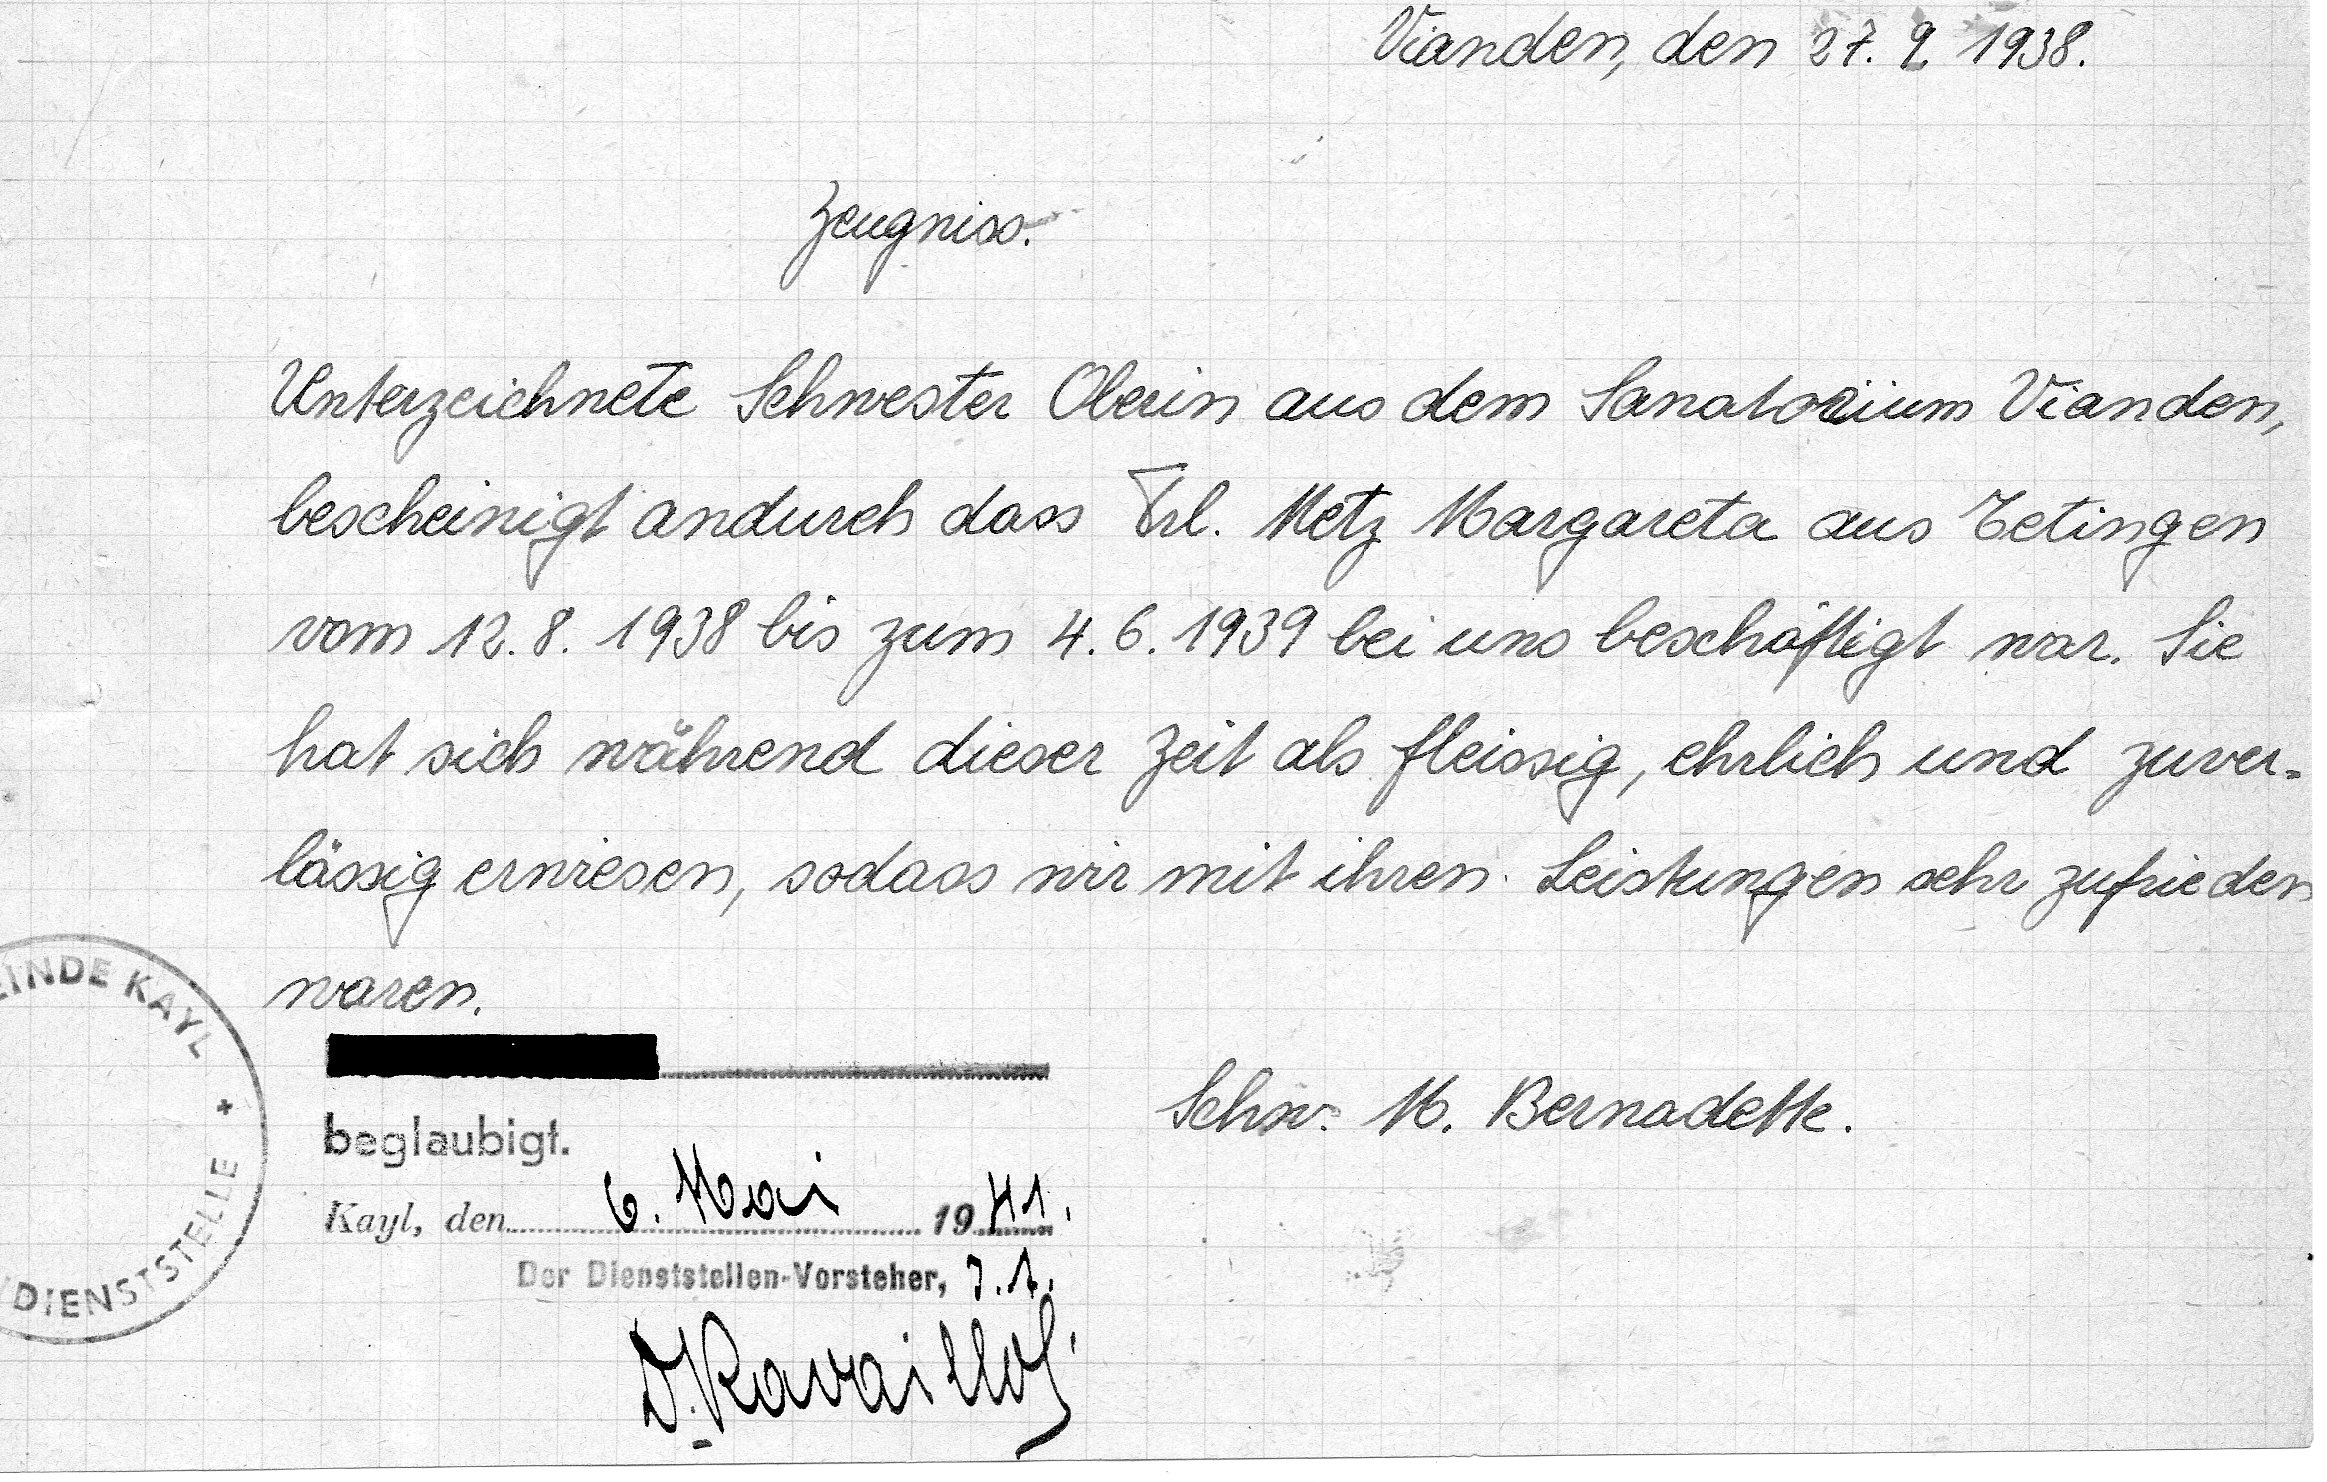 Vianden, den 27. 9. 1938.
Zeugniss.
Unterzeichnete Schwester Oberin aus dem Sanatorium Vianden,
bescheinigt andurch dass Frl. Metz Margareta aus Tetingen
vom 12. 8. 1938 bis zum 4. 6. 1939 bei uns beschäftigt war. Sie
hat sich während dieser Zeit als fleissig, ehrlich und zuver-
lässig erwiesen, sodass wir mit ihren Leistungen sehr zufrieden
waren.
Schw. M. Bernadette.
EINDE KAYL +
DIENSTSTELLE
beglaubigt.
Kayl, den 6. Mai 1941.
Der Dienststellen-Vorsteher,